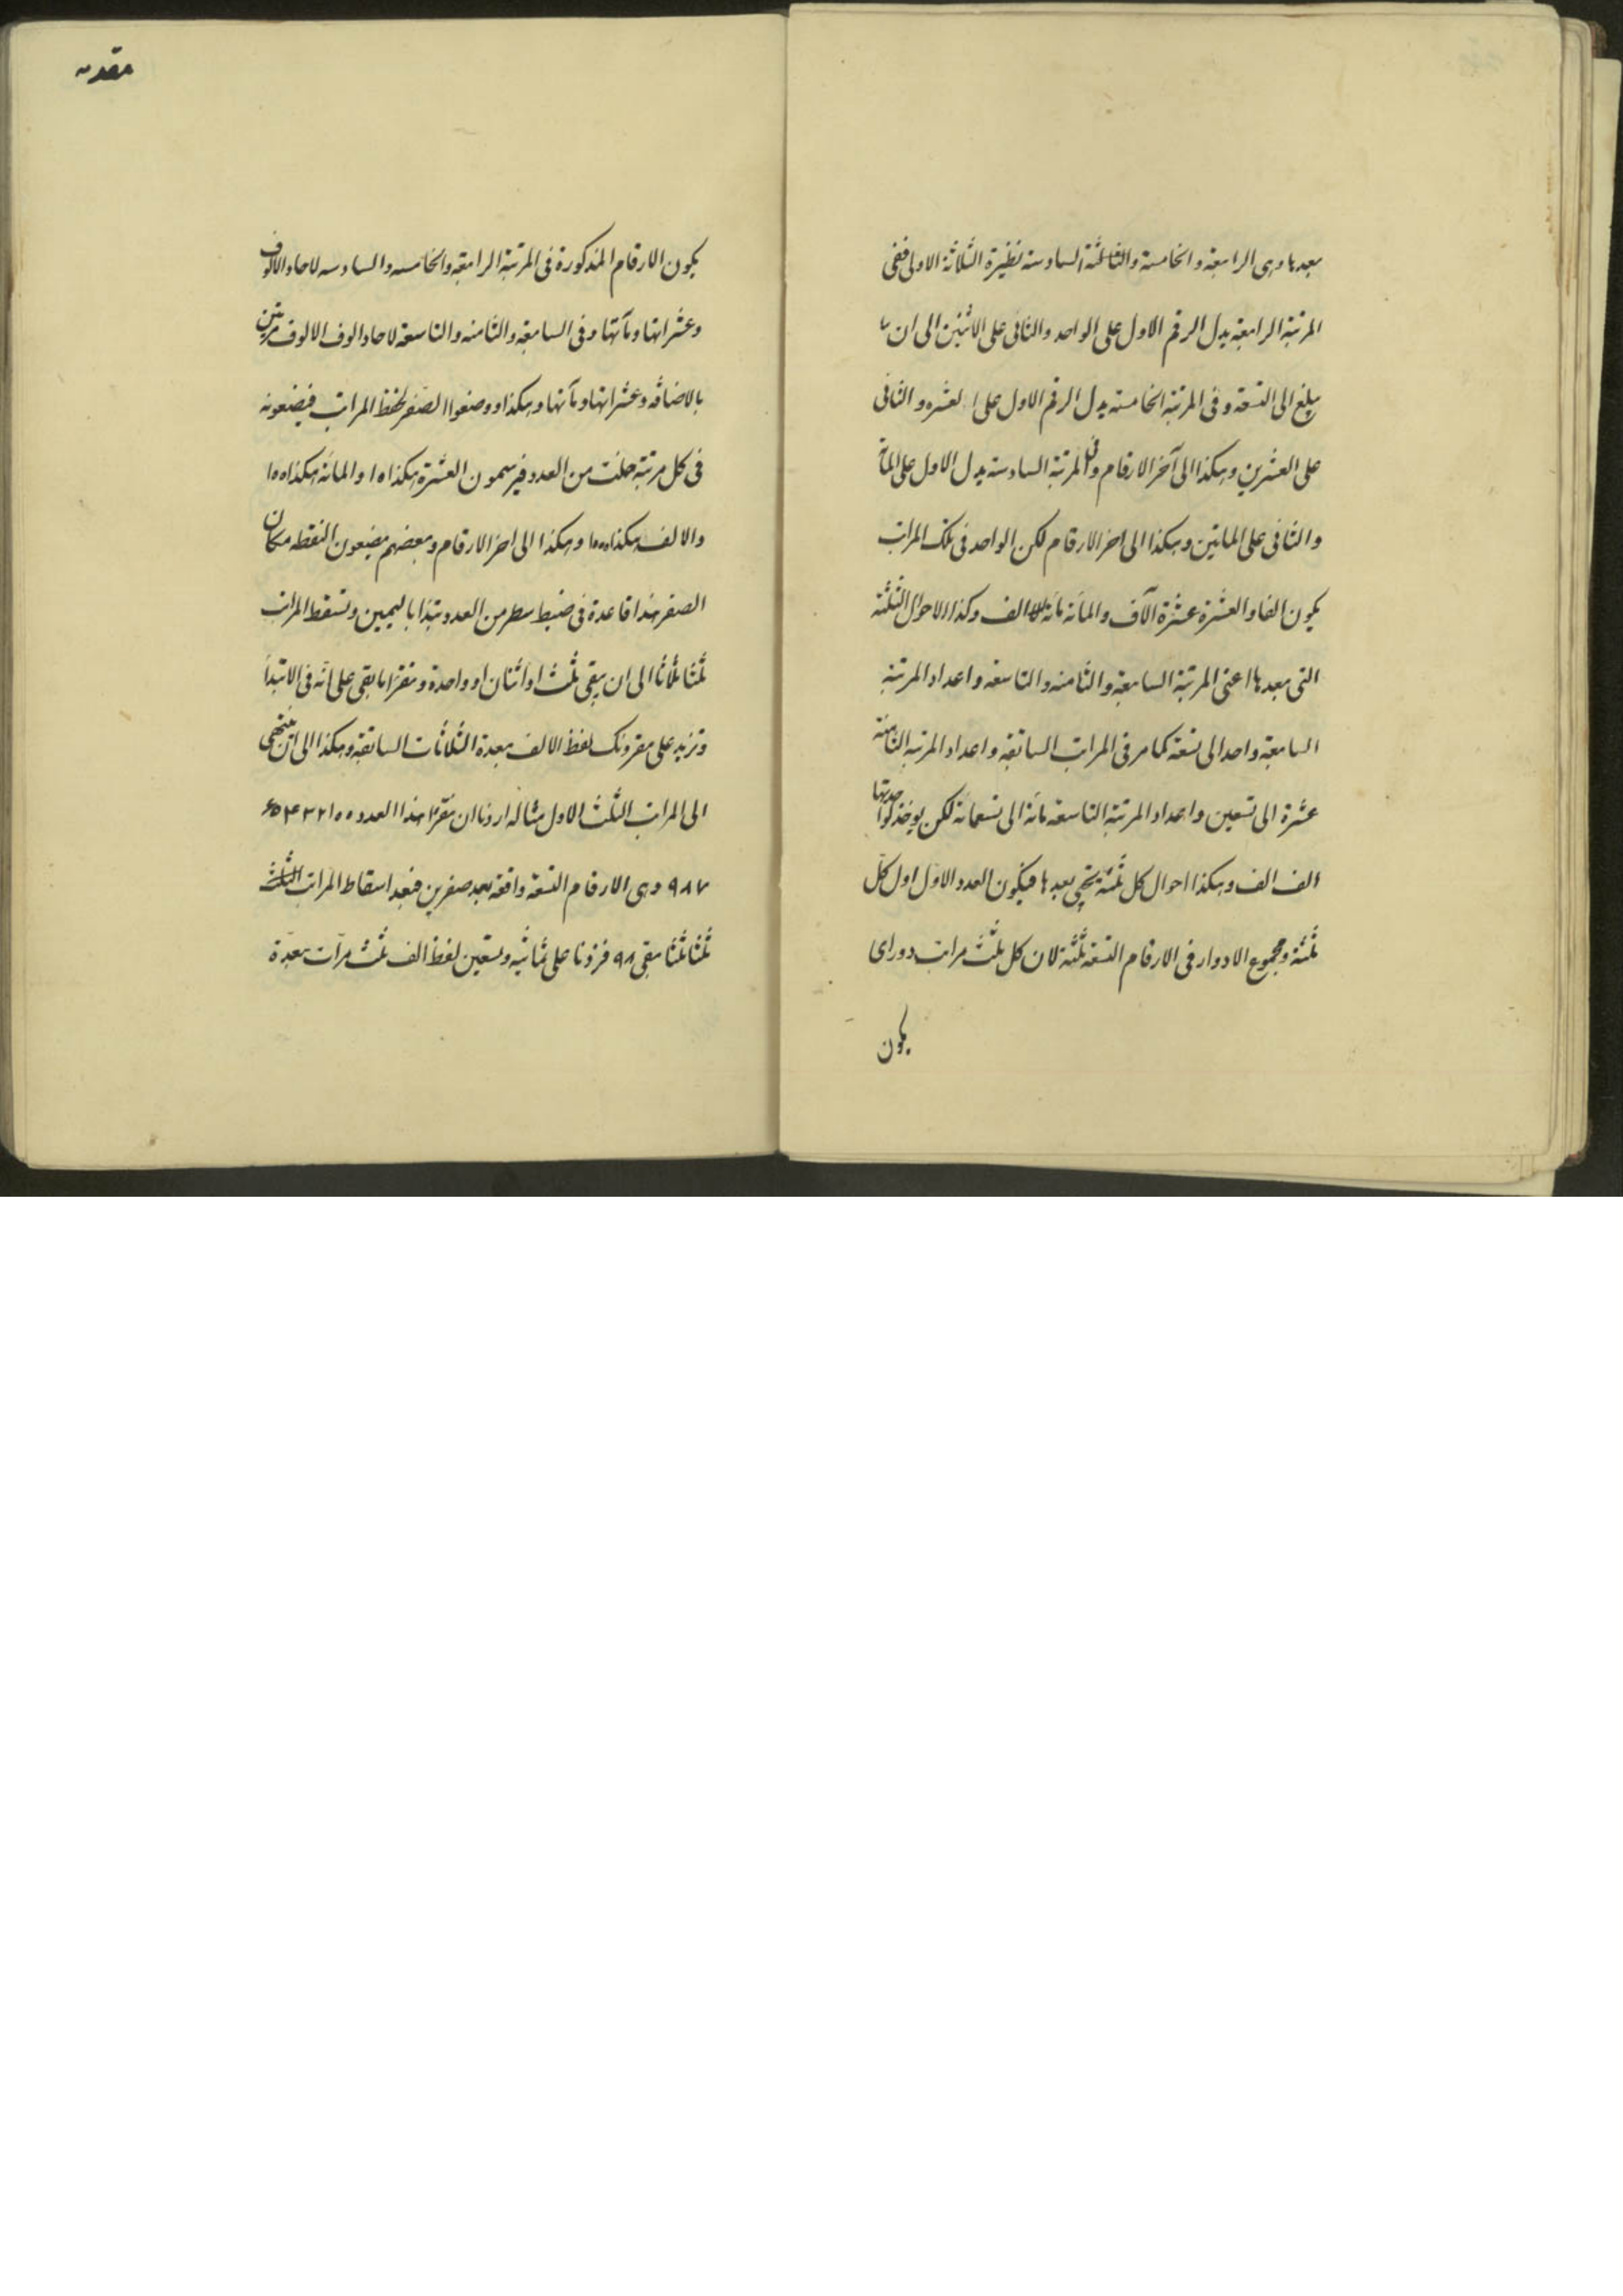 بعدها وهى الرابعة والخامسة والسادسة نظيرة الثلاثة الاولى ففى
المرتبة الرابعة يدل الرقم الاول على الواحد والثانى على الاثنين الى ان
يبلغ الى التسعة وفى المرتبة الخامسة يدل الرقم الاول على العشره والثانى
على العشرين وهكذا الى آخر الارقام وفى المرتبة السادسة يدل الاول على المائة
والثانى على المائتين وهكذا الى اخر الارقام لكن الواحد فى تلك المراتب
يكون الفا والعشرة عشرة آلاف والمائة مائة الف وكذا الاحوال الثلثة
التى بعدها اعنى المرتبة السابعة والثامنه والتاسعه واعداد المرتبة
السابعة واحد الى تسعة كما مر فى المراتب السابقة واعداد المرتبه الثامنة
عشرة الى تسعين واعداد المرتبة التاسعة مائة الى تسعمائة لكن يوخذ
الف الف وهكذا احوال كل ثلثة يجئ بعدها فيكون العدد الاول اول كل
ثلثة ومجموع الادوار فى الارقام التسعة ثلثة لان كل ثلث مراتب دور اى
يكون
مقدمه
يكون الارقام المذكورة فى المرتبة الرابعة والخامسه والسادسه لاحاد الالوف
وعشراتها ومآتها وفى السابعة والثامنه والتاسعة لاحاد الوف الالوف مرتين
بالاضافه وعشراتها ومآتها وهكذا ووضعوا الصفر لحفظ المراتب فيضعونه
فى كل مرتبة خلت من العدد فيرسمون العشرة هكذا ١٥ والمائة هكذا ١٥٥
والالف هكذا ١٥٥٥ وهكذا الى اخر الارقام وبعضهم يضعون النقطه مكان
الصفر هذا قاعدة فى ضبط سطر من العدد تبتدا باليمين وتسقط المراتب
ثلثا ثلاثا الى ان يبقى ثلث او اثنان او واحدة وتقرا ما بقى على انه فى الابتدأ
وتزيد على مقروئك لفظ الالف بعدة الثلاثات السابقة وهكذا الى ان ينتهى
الى المراتب الثلث الاول مثاله اردنا ان نقرا هذا العدد ٥٥ ١ ٢ ٣ ۴ ۵ ۶
٩٨٧ وهى الارقام التسعة واقعة بعد صفرين فبعد اسقاط المراتب الثلث
ثلثا ثلثا بقى ٩٨ فزدنا على ثمانيه وتسعين لفظ الف ثلث مرآت بعدة